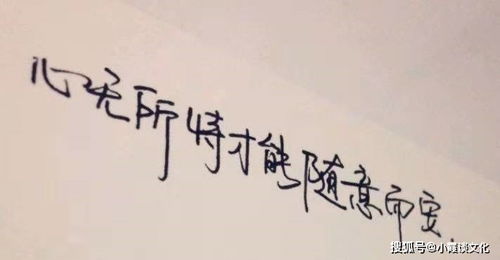 心无所恃才能随意而安.
搜狐号@小嘴谈文化